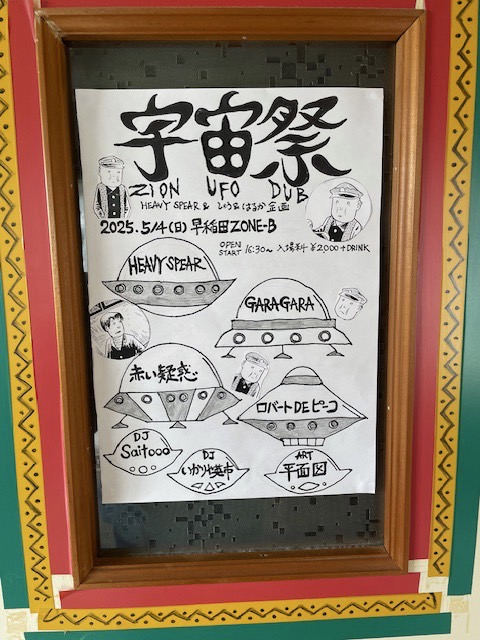 宇宙祭
ZION UFO DUB
HEAVY SPEAR & しょうじまはるか 企画
2025.5/4(日) 早稲田ZONE-B
OPEN
START 16:30~ 入場料 ¥2,000+DRINK
HEAVY SPEAR
GARAGARA
赤い疑惑
ロバートDEピーコ
DJ
Saitooo
DJ
いかりや英市
ART
平面図